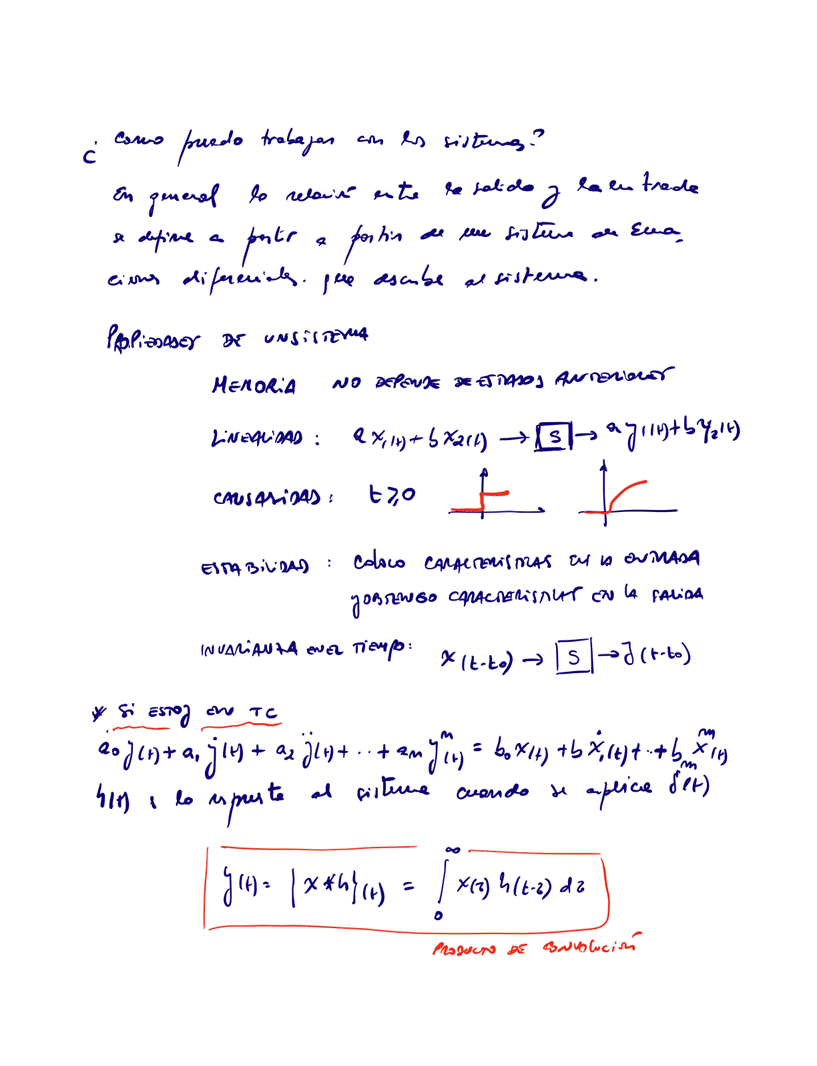 ¿Como puedo trabajar con los sistemas?
En general la relación entre la salida y la entrada
se define a partir a partir de un sistema de Ecua,
ciones diferenciales. que describe al sistema.
PROPIEDADES DE UN SISTEMA
MEMORIA NO DEPENDE DE ESTADOS ANTERIORES
LINEALIDAD: a x₁(t) + b x₂(t) → S → a y₁(t) + b y₂(t)
CAUSALIDAD: t ≥ 0
ESTABILIDAD: COLOCO CARACTERISTICAS EN LA ENTRADA
y OBTENGO CARACTERISTICAS EN LA SALIDA
INVARIANZA EN EL TIEMPO: x(t-t₀) → S → y(t-t₀)
* Si ESTOY EN TC
a₀ y(t) + a₁ ẏ(t) + a₂ ÿ(t) + ... + aₙ yⁿ(t) = b₀ x(t) + b ẋ₁(t) + ... + bₘ xᵐ(t)
h(t) : la respuesta al sistema cuando se aplica δ(t)
y(t) = {x * h}(t) = ∫₀^∞ x(τ) h(t-τ) dτ
PRODUCTO DE CONVOLUCIÓN